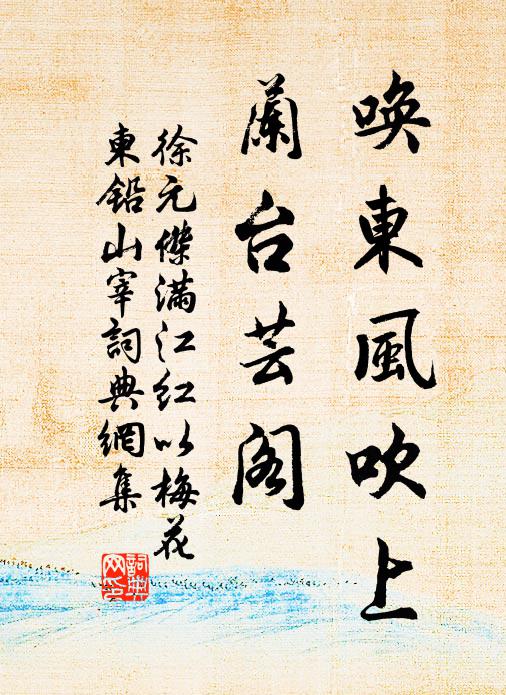 喚東風吹上
蘭台芸阁
徐元傑滿江紅以梅花
東鉛山宰詞典網集
詞典网印